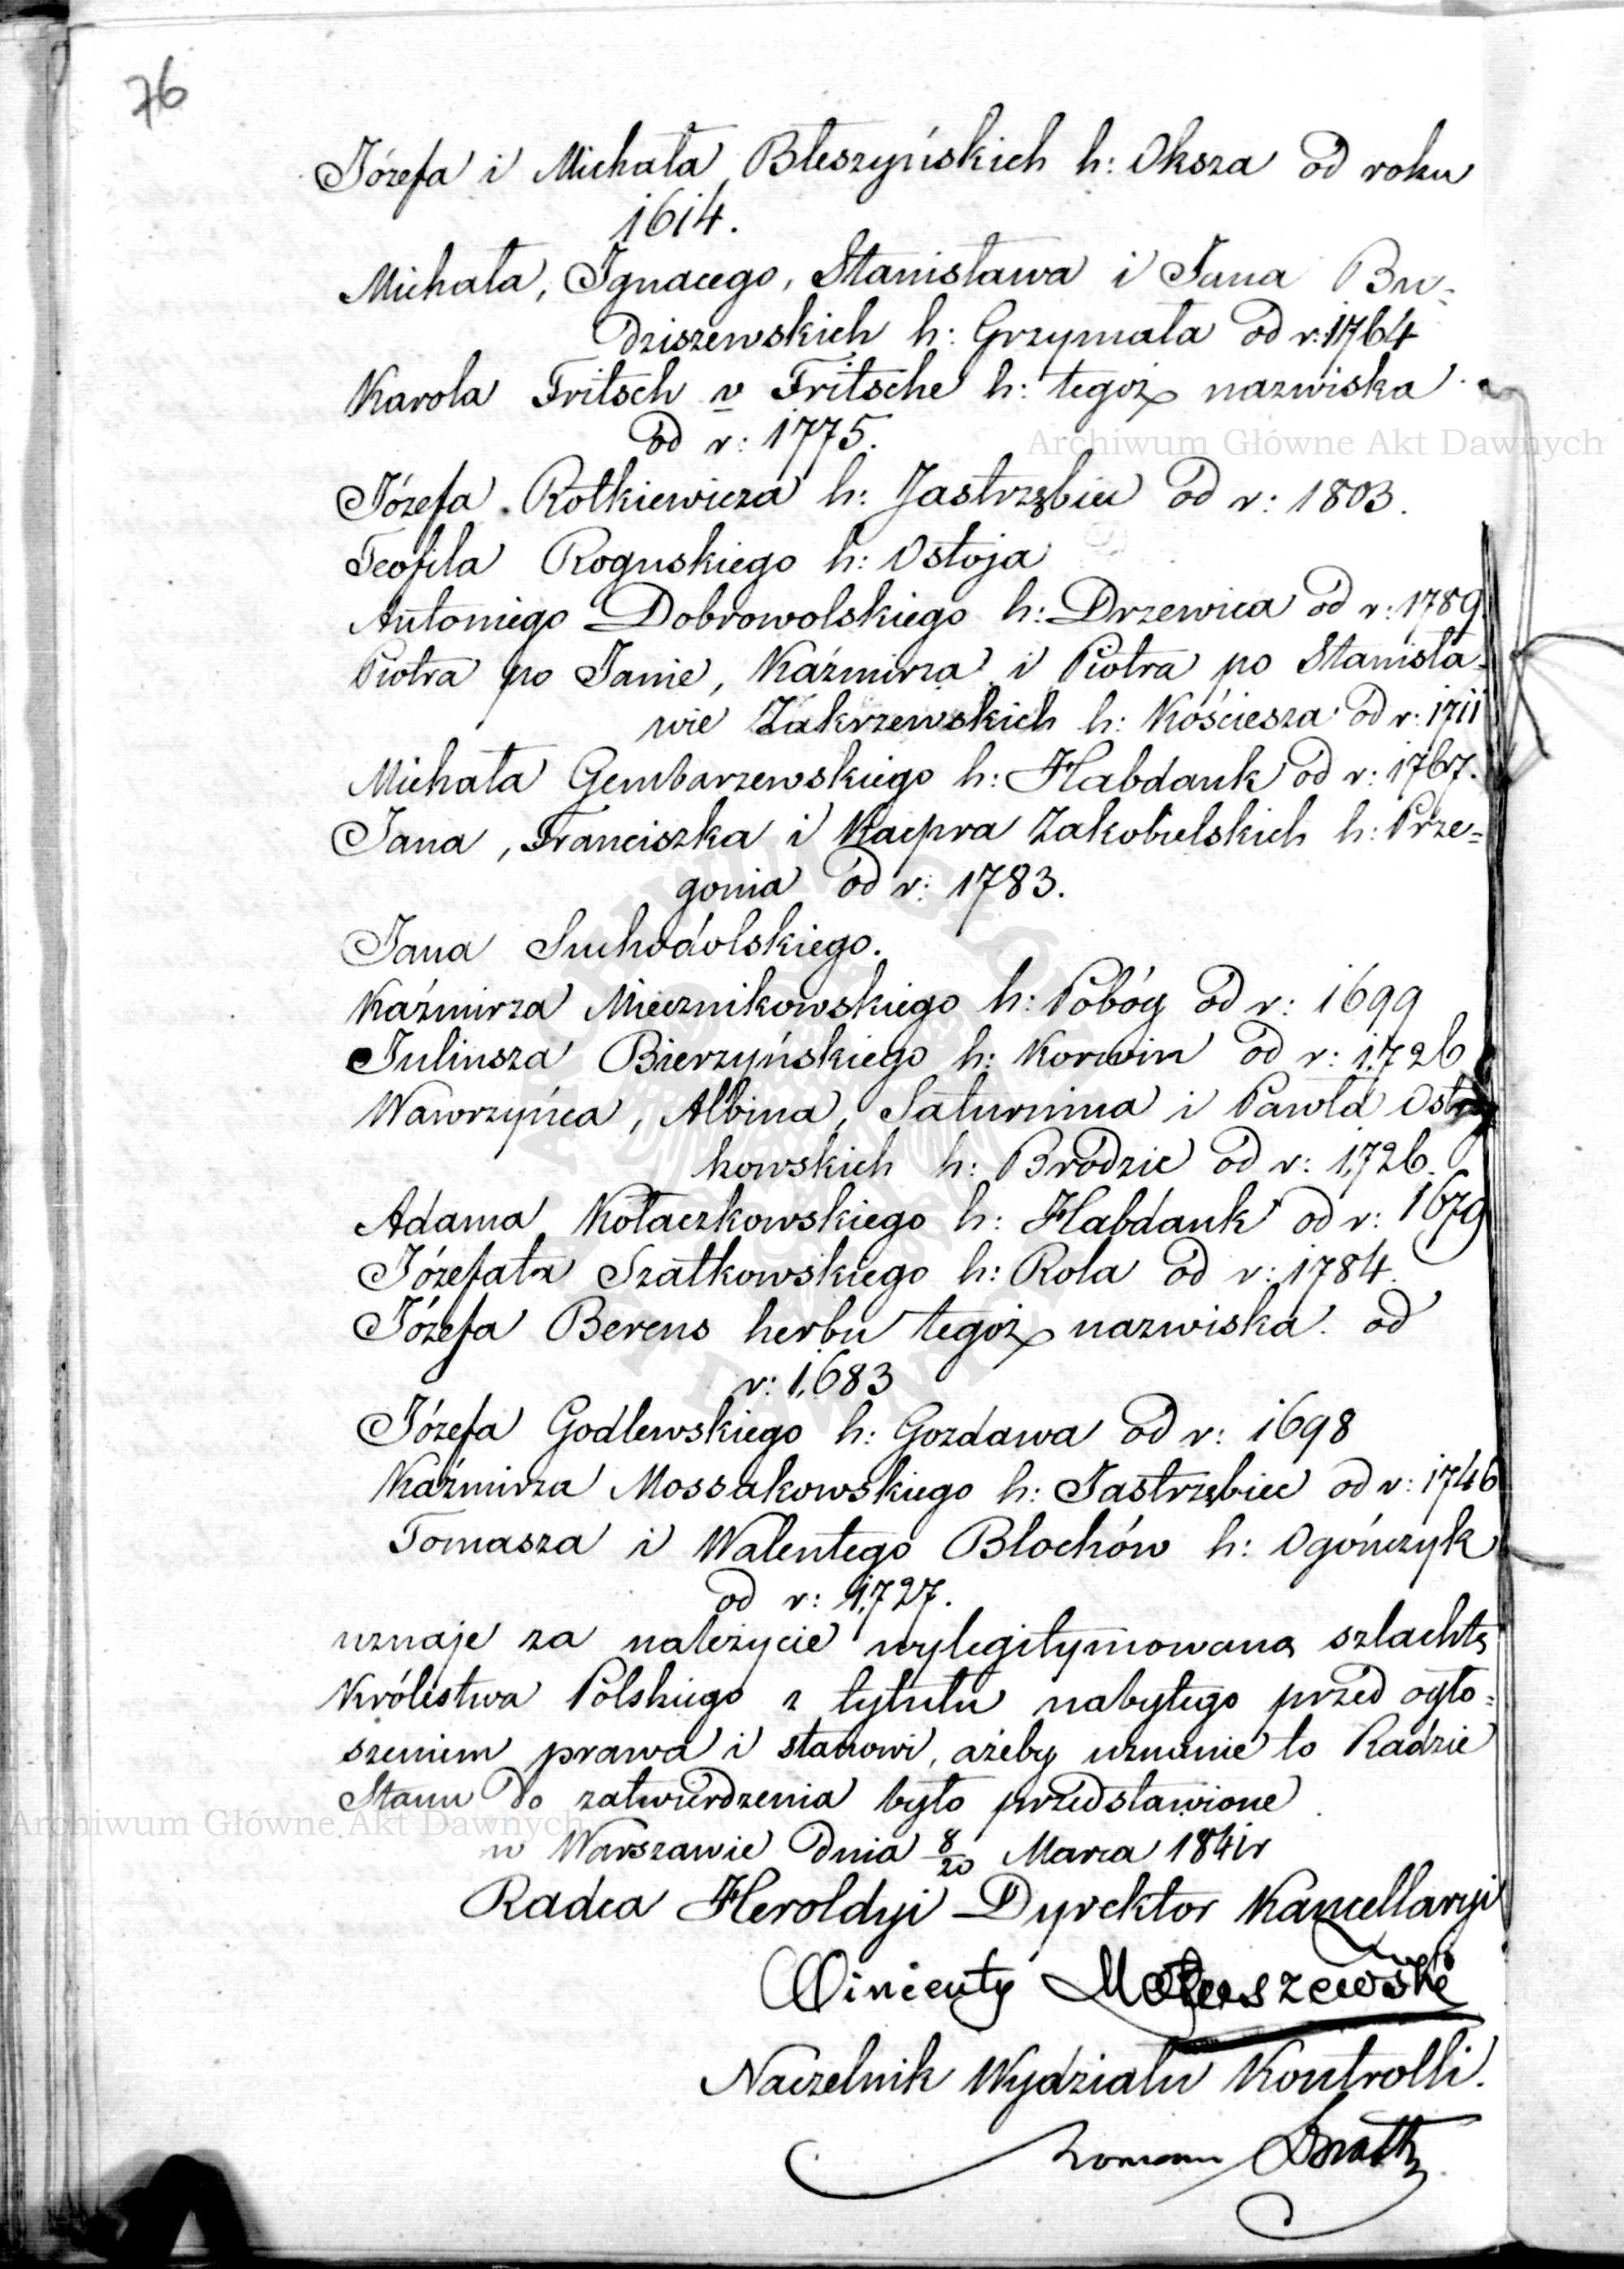 76
Józefa i Michała Błeszyńskich h: Oksza od roku
1614.
Michała, Ignacego, Stanisława i Jana Bu=
dziszewskich h: Grzymała od r: 1764
Karola Fritsch v Fritsche h: tegoż nazwiska
od r: 1775.
Archiwum Główne Akt Dawnych
Józefa Rotkiewicza h: Jastrzębiec od r: 1803.
Teofila Roguskiego h: Ostoja
Antoniego Dobrowolskiego h: Drzewica od r: 1789
Piotra po Janie, Kaźmirza i Piotra po Stanisła=
wie Zakrzewskich h: Kościesza od r: 1711
Michała Gembarzewskiego h: Habdank od r: 1767.
Jana, Franciszka i Kacpra Zakobielskich h: Prze=
gonia od r: 1783.
Jana Suchodolskiego.
Kaźmirza Miecznikowskiego h: Pobóg od r: 1699
Juliusza Bierzyńskiego h: Korwin od r: 1726
Wawrzyńca, Albina, Saturnina i Pawła
kowskich h: Brodzic od r: 1726.
Adama Kołaczkowskiego h: Habdank od r: 1679
Józefata Szatkowskiego h: Rola od r: 1784.
Józefa Berens herbu tegoż nazwiska od
r: 1683
Józefa Godlewskiego h: Gozdawa od r: 1698
Kaźmirza Mossakowskiego h: Jastrzębiec od r: 1746
Tomasza i Walentego Blochów h: Ogończyk
od r: 1727.
uznaje za należycie wylegitymowaną szlachtę
Królestwa Polskiego z tytułu nabytego przed ogło=
szeniem prawa i stanowi, ażeby uznanie to Radzie
Stanu do zatwierdzenia było przedstawione
Archiwum Główne Akt Dawnych
w Warszawie dnia 8/20 Marca 1841 r
Radca Heroldyi Dyrektor Kancellaryi
Wincenty Matuszewski
Naczelnik Wydziału Kontrolli.